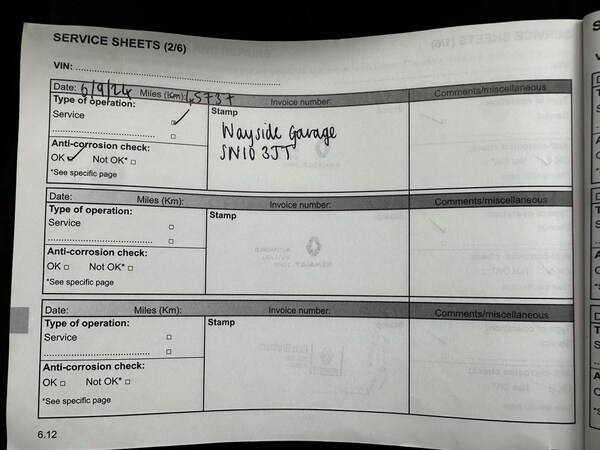 SERVICE SHEETS (2/6)
VIN: ........................................
Date: 6/9/24 Miles (Km): 45737 Invoice number: Comments/miscellaneous
Type of operation: Stamp
Service ✓ Wayside Garage
........................................ SN10 3JT
Anti-corrosion check:
OK ✓ Not OK* □
*See specific page
Date: Miles (Km): Invoice number: Comments/miscellaneous
Type of operation: Stamp
Service □
........................................ □
Anti-corrosion check:
OK □ Not OK* □
*See specific page
Date: Miles (Km): Invoice number: Comments/miscellaneous
Type of operation: Stamp
Service □
........................................ □
Anti-corrosion check:
OK □ Not OK* □
*See specific page
6.12